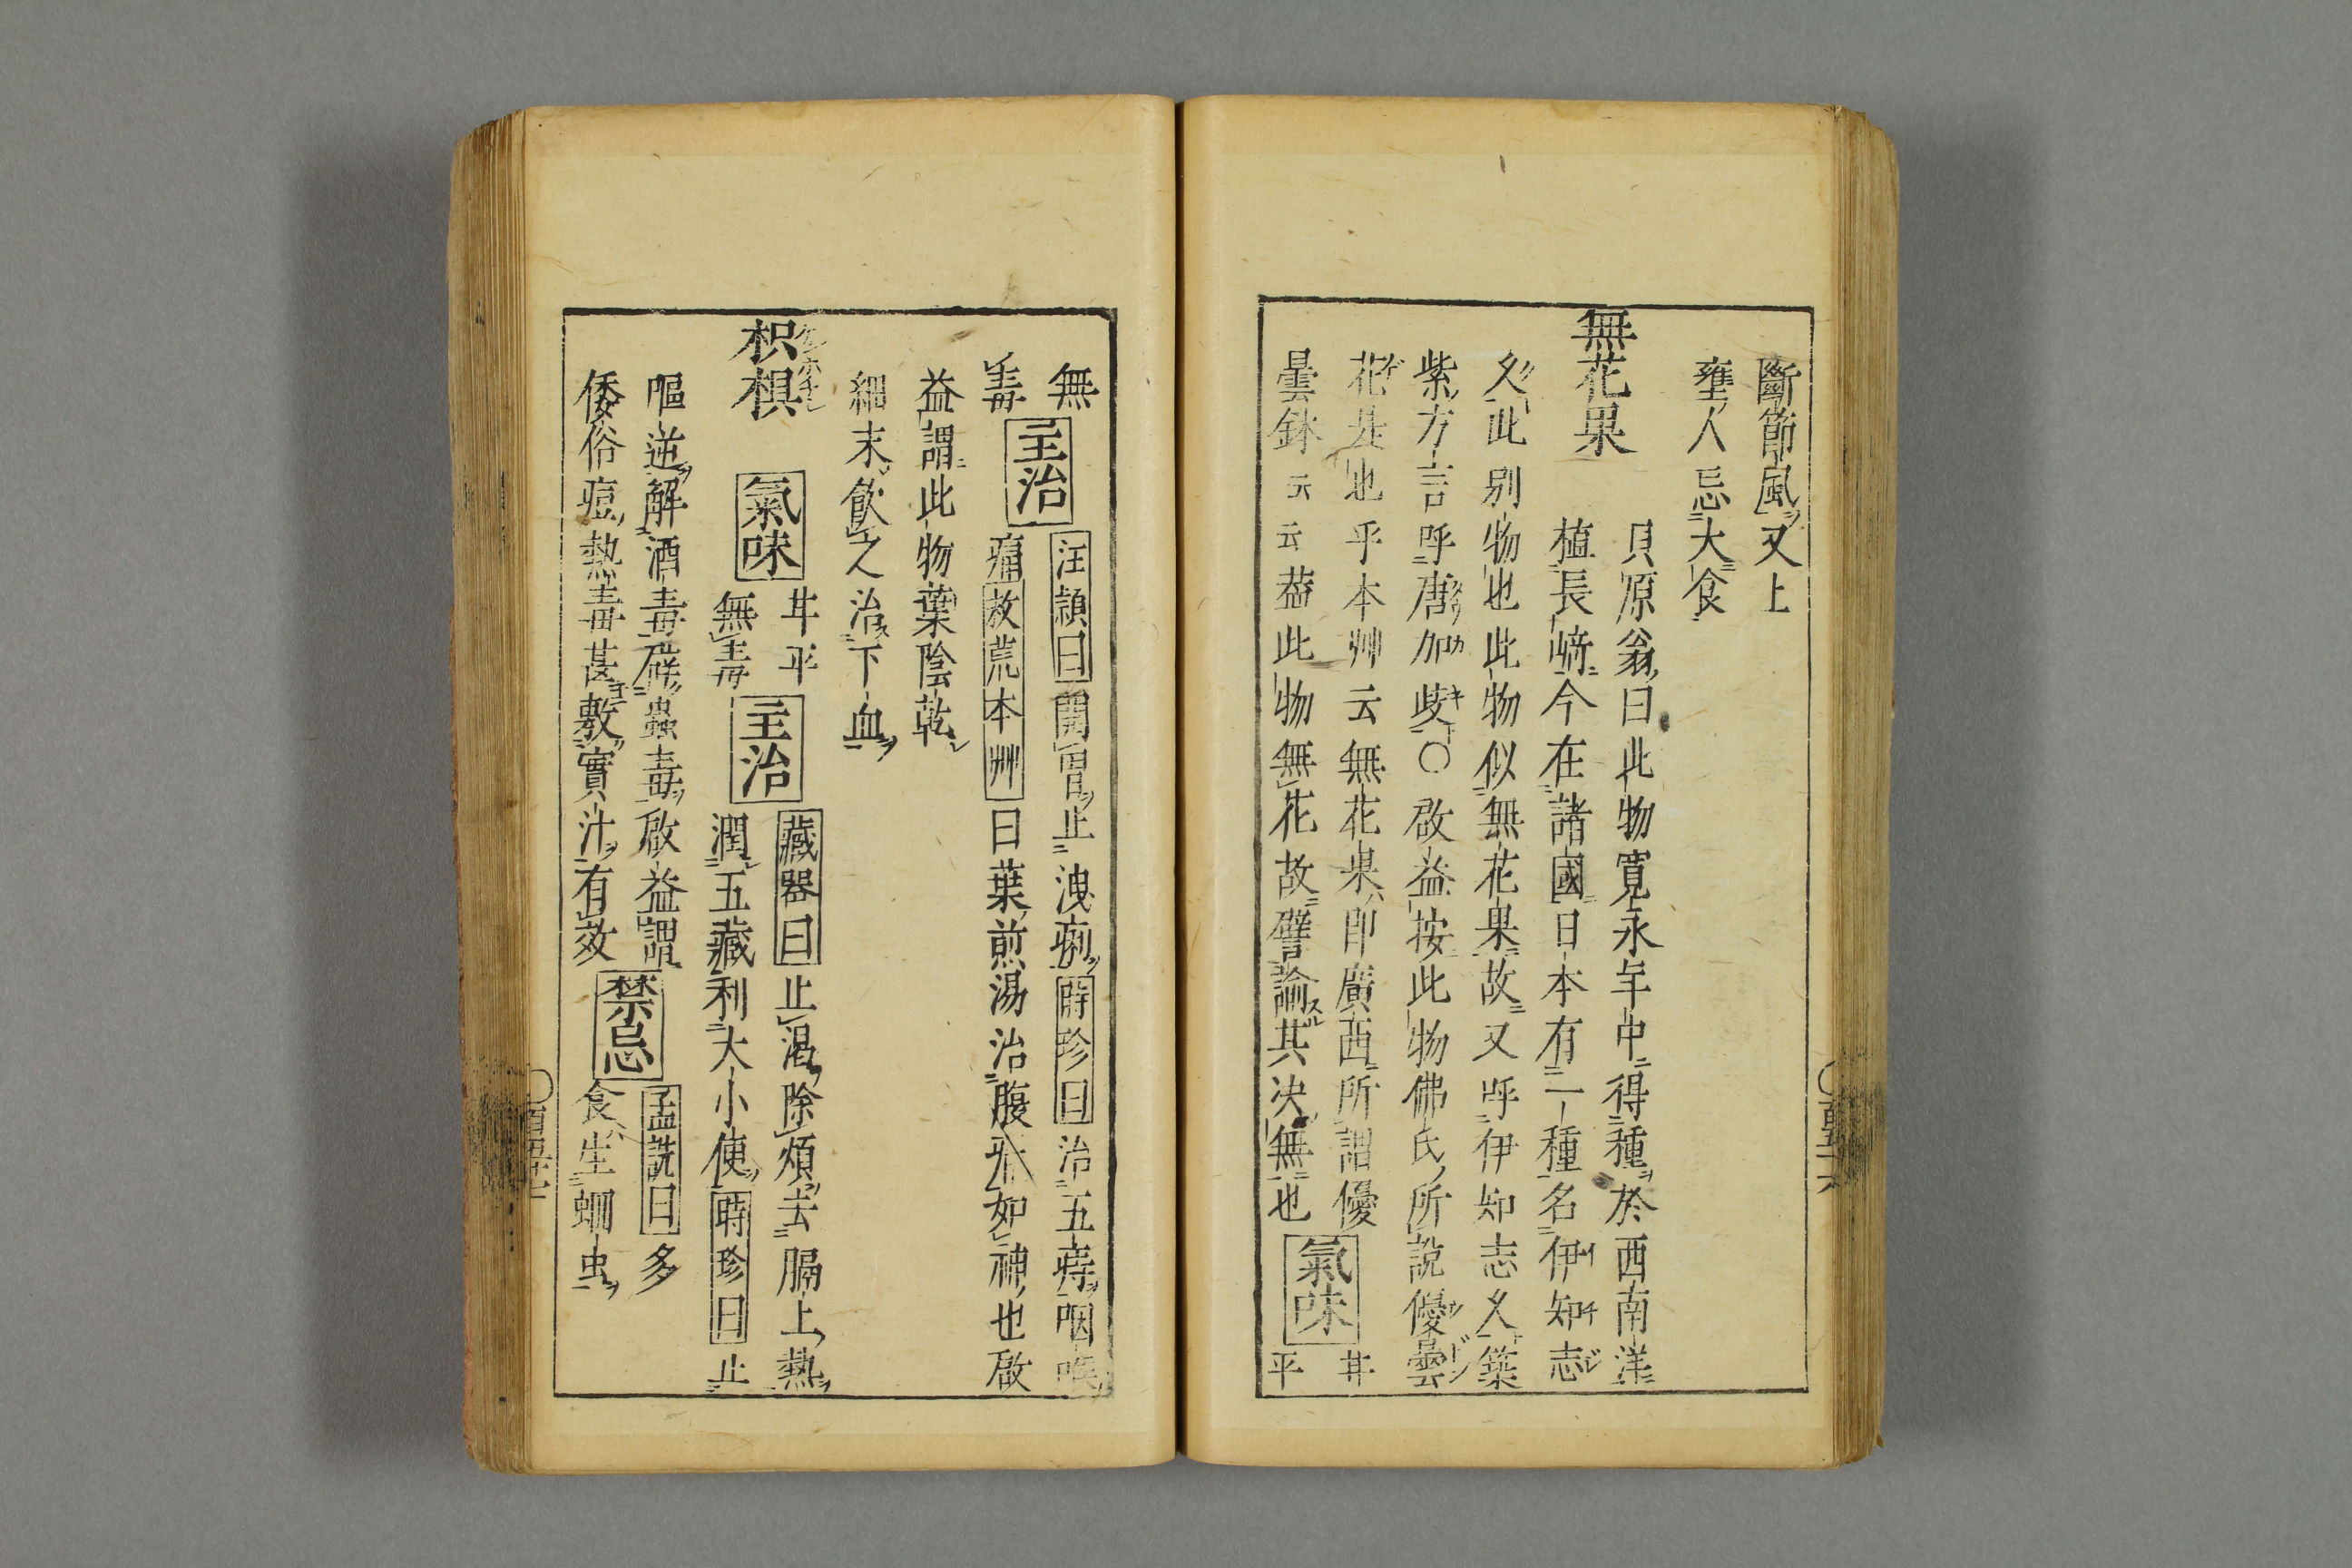 斷節風又上
壅人忌大食
無花果
貝原翁曰此物寬永年中得種於西南洋
植長﨑今在諸國日本有一種名伊知志
久此別物也此物似無花果故又呼伊知志久築
紫方言呼唐加𣘺〇啟益按此物佛氏所說優曇
花是也乎本艸云無花果即廣西所謂優
曇鉢云云葢此物無花故譬諭其决無也
氣味
甘
平
無
毒
主治
汪頴曰開胃止洩痢時珍曰治五痔咽喉
痛救荒本艸曰葉煎湯治腹痛如神也啟
益謂此物葉陰乾
細末飲之治下血
枳椇
氣味
甘平
無毒
主治
藏器曰止渴除煩去膈上熱
潤五藏利大小便時珍曰止
嘔逆解酒毒辟蟲毒啟益謂
倭俗痘熱毒甚敷實汁有效
禁忌
孟詵曰多
食生蛔虫
〇百五十六
〇百五十七